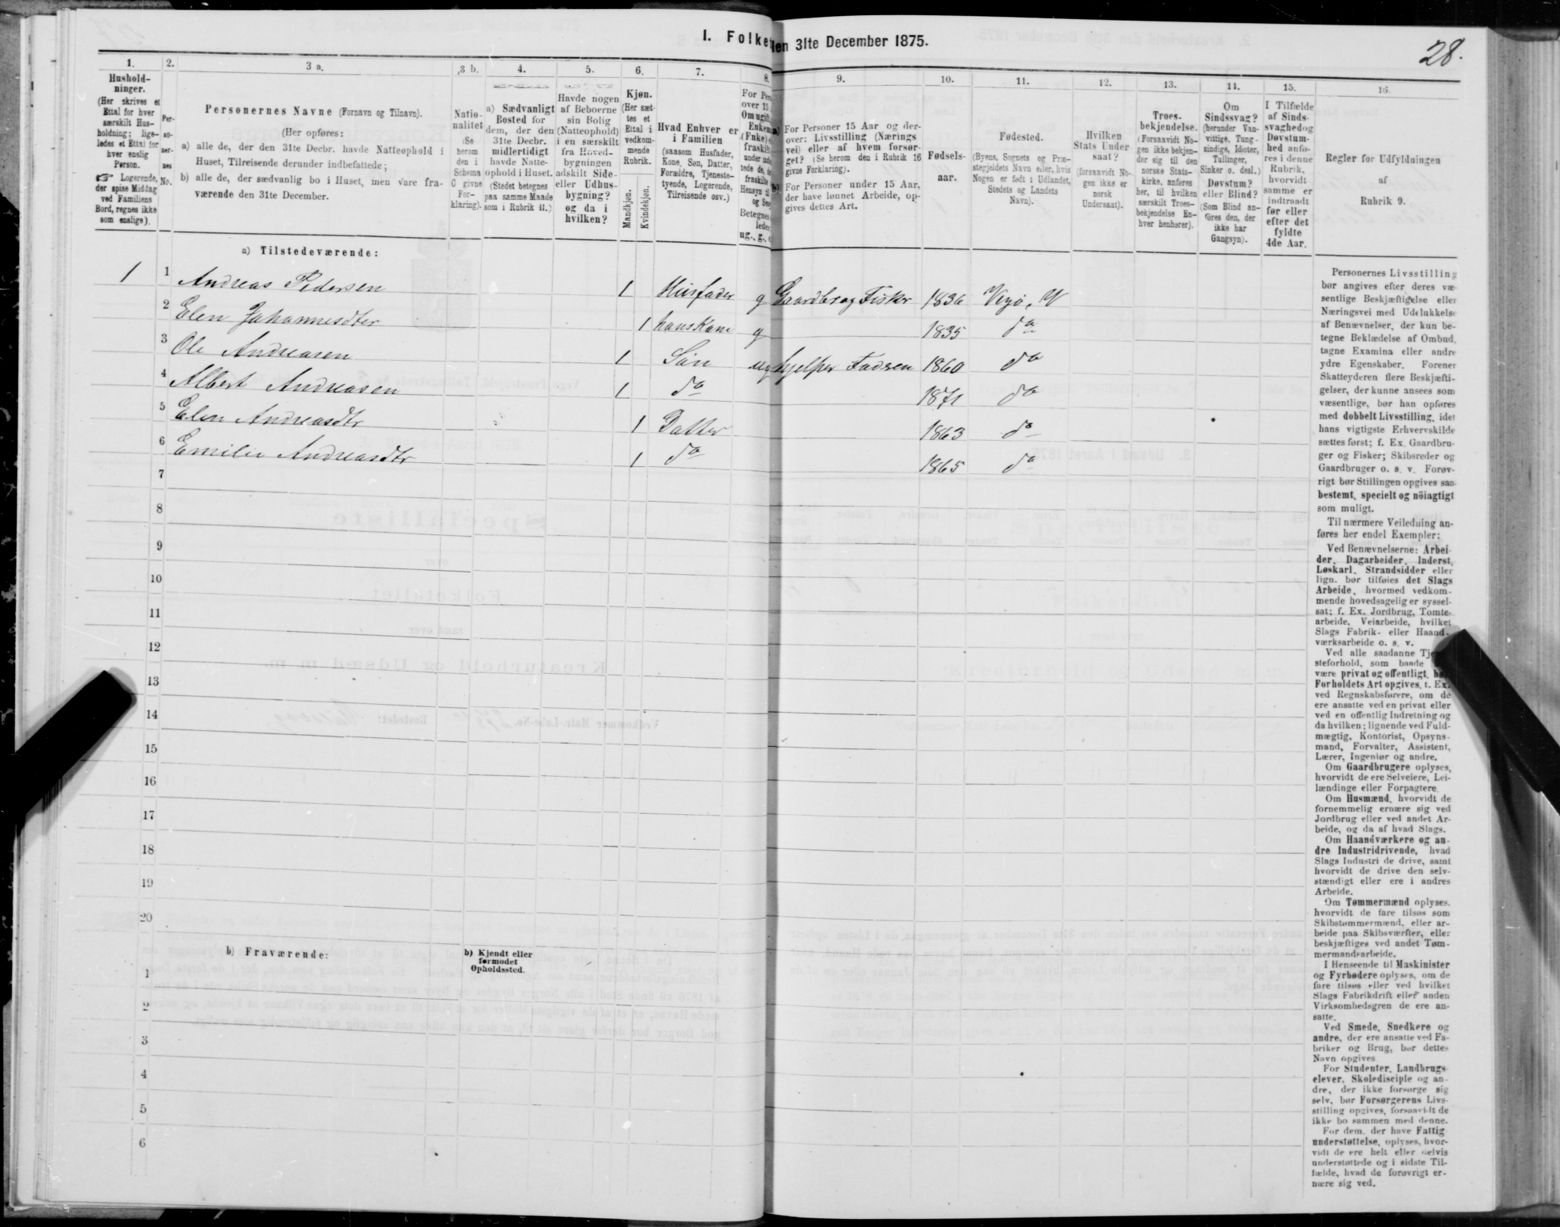 I. Folke
den 31te December 1875.
28.
1.
2.
3 a.
3 b.
4.
5.
6.
7.
8.
9.
10.
11.
12.
13.
14.
15.
16.
Hushold-
ninger.
(Her skrives et
Ettal for hver
særskilt Hus-
holdning; lige-
ledes et Ettal for
hver enslig
Person.
☞ Logerende,
der spise Middag
ved Familiens
Bord, regnes ikke
som enslige).
Per-
so-
ner-
nes
No.
Personernes Navne (Fornavn og Tilnavn).
(Her opføres:
a) alle de, der den 31te Decbr. havde Natteophold i
Huset, Tilreisende derunder indbefattede;
b) alle de, der sædvanlig bo i Huset, men vare fra-
værende den 31te December.
Natio-
nalitet
(Se
herom
den i
Schema
C givne
For-
klaring).
a) Sædvanligt
Bosted for
dem, der den
31te Decbr.
midlertidigt
havde Natte-
ophold i Huset.
(Stedet betegnes
paa samme Maade
som i Rubrik 11.)
Havde nogen
af Beboerne
sin Bolig
(Natteophold)
i en særskilt
fra Hoved-
bygningen
adskilt Side-
eller Udhus-
bygning?
og da i
hvilken?
Kjøn.
(Her sæt-
tes et
Ettal i
vedkom-
mende
Rubrik.
Mandkjøn.
Kvindekjøn.
Hvad Enhver er
i Familien
(saasom Husfader,
Kone, Søn, Datter,
Forældre, Tjeneste-
tyende, Logerende,
Tilreisende osv.)
For Personer 15 Aar og der-
over: Livsstilling (Nærings
vei) eller af hvem forsør-
get? (Se herom den i Rubrik 16
givne Forklaring).
For Personer under 15 Aar,
der have lønnet Arbeide, op-
gives dettes Art.
Fødsels-
aar.
Fødested.
(Byens, Sognets og Præ-
stegjeldets Navn eller, hvis
Nogen er født i Udlandet,
Stedets og Landets
Navn).
Hvilken
Stats Under
saat?
(forsaavidt No-
gen ikke er
norsk
Undersaat).
Troes-
bekjendelse.
(Forsaavidt No-
gen ikke bekjen-
der sig til den
norske Stats-
kirke, anføres
her, til hvilken
særskilt Troes-
bekjendelse En-
hver henhører).
Om
Sindssvag?
(herunder Van-
vittige, Tung-
sindige, Idioter,
Tullinger,
Sinker o. desl.)
Døvstum?
eller Blind?
(Som Blind an-
føres den, der
ikke har
Gangsyn).
I Tilfælde
af Sinds-
svaghed og
Døvstum-
hed anfø-
res i denne
Rubrik,
hvorvidt
samme er
indtraadt
før eller
efter det
fyldte
4de Aar.
Regler for Udfyldningen
af
Rubrik 9.
a) Tilstedeværende:
1 1 Andreas Pedersen 1 Husfader g Gaardbr og Fisker 1836 Vegø, N
2 Elen Johannesdter 1 hans Kone g 1835 do
3 Ole Andreasen 1 Søn ug hjelper Fadren 1860 do
4 Albert Andreasen 1 do 1871 do
5 Elen Andreasdtr 1 Datter 1863 do
6 Emilie Andreasdtr 1 do 1865 do
7
8
9
10
11
12
13
14
15
16
17
18
19
20
b) Fraværende:
b) Kjendt eller
formodet
Opholdssted.
1
2
3
4
5
6
Personernes Livsstilling
bør angives efter deres væ-
sentlige Beskjæftigelse eller
Næringsvei med Udelukkelse
af Benævnelser, der kun be-
tegne Beklædelse af Ombud,
tagne Examina eller andre
ydre Egenskaber. Forener
Skatteyderen flere Beskjæfti-
gelser, der kunne ansees som
væsentlige, bør han opføres
med dobbelt Livsstilling, idet
hans vigtigste Erhvervskilde
sættes først; f. Ex. Gaardbru-
ger og Fisker; Skibsreder og
Gaardbruger o. s. v. Forøv-
rigt bør Stillingen opgives saa
bestemt, specielt og nöiagtigt
som muligt.
Til nærmere Veiledning an-
føres her endel Exempler:
Ved Benævnelserne: Arbei-
der, Dagarbeider, Inderst,
Løskarl, Strandsidder eller
lign. bør tilføies det Slags
Arbeide, hvormed vedkom-
mende hovedsagelig er syssel-
sat; f. Ex. Jordbrug, Tomte-
arbeide, Veiarbeide, hvilket
Slags Fabrik- eller Haand-
værksarbeide o. s. v.
Ved alle saadanne
steforhold, som baade
være privat og offentligt,
Forholdets Art opgives, t. Ex.
ved Regnskabsførere, om de
ere ansatte ved en privat eller
ved en offentlig Indretning og
da hvilken; lignende ved Fuld-
mægtig, Kontorist, Opsyns-
mand, Forvalter, Assistent,
Lærer, Ingeniør og andre.
Om Gaardbrugere oplyses,
hvorvidt de ere Selveiere, Lei-
lændinge eller Forpagtere.
Om Husmænd, hvorvidt de
fornemmelig ernære sig ved
Jordbrug eller ved andet Ar-
beide, og da af hvad Slags.
Om Haandværkere og an-
dre Industridrivende, hvad
Slags Industri de drive, samt
hvorvidt de drive den selv-
stændigt eller ere i andres
Arbeide.
Om Tømmermænd oplyses,
hvorvidt de fare tilsøs som
Skibstømmermænd, eller ar-
beide paa Skibsværfter, eller
beskjæftiges ved andet Tøm-
mermandsarbeide.
I Henseende til Maskinister
og Fyrbødere oplyses, om de
fare tilsøs eller ved hvilket
Slags Fabrikdrift eller anden
Virksomhedsgren de ere an-
satte.
Ved Smede, Snedkere og
andre, der ere ansatte ved Fa-
briker og Brug, bør dettes
Navn opgives
For Studenter, Landbrugs-
elever, Skoledisciple og an-
dre, der ikke forsørge sig
selv, bør Forsørgerens Livs-
stilling opgives, forsaavidt de
ikke bo sammen med denne.
For dem, der have Fattig-
understøttelse, oplyses, hvor-
vidt de ere helt eller delvis
understøttede og i sidste Til-
fælde, hvad de forøvrigt er-
nære sig ved.